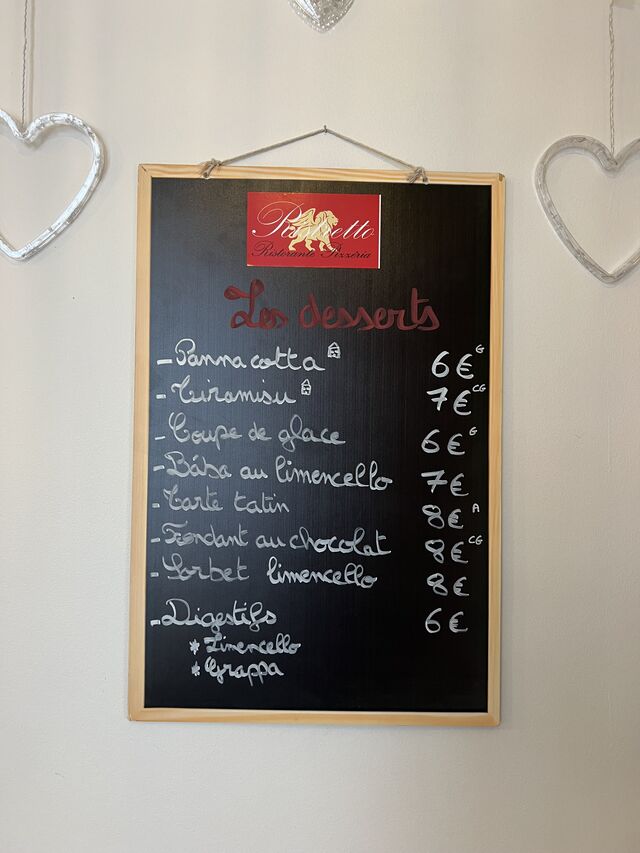 Ristretto
Ristorante Pizzéria
Les desserts
- Panna cotta 6€ G
- Tiramisu 7€ CG
- Coupe de glace 6€ G
- Bába au limencello 7€
- Tarte tatin 8€ A
- Fondant au chocolat 8€ CG
- Sorbet limencello 8€
- Digestifs 6€
* Limencello
* Grappa